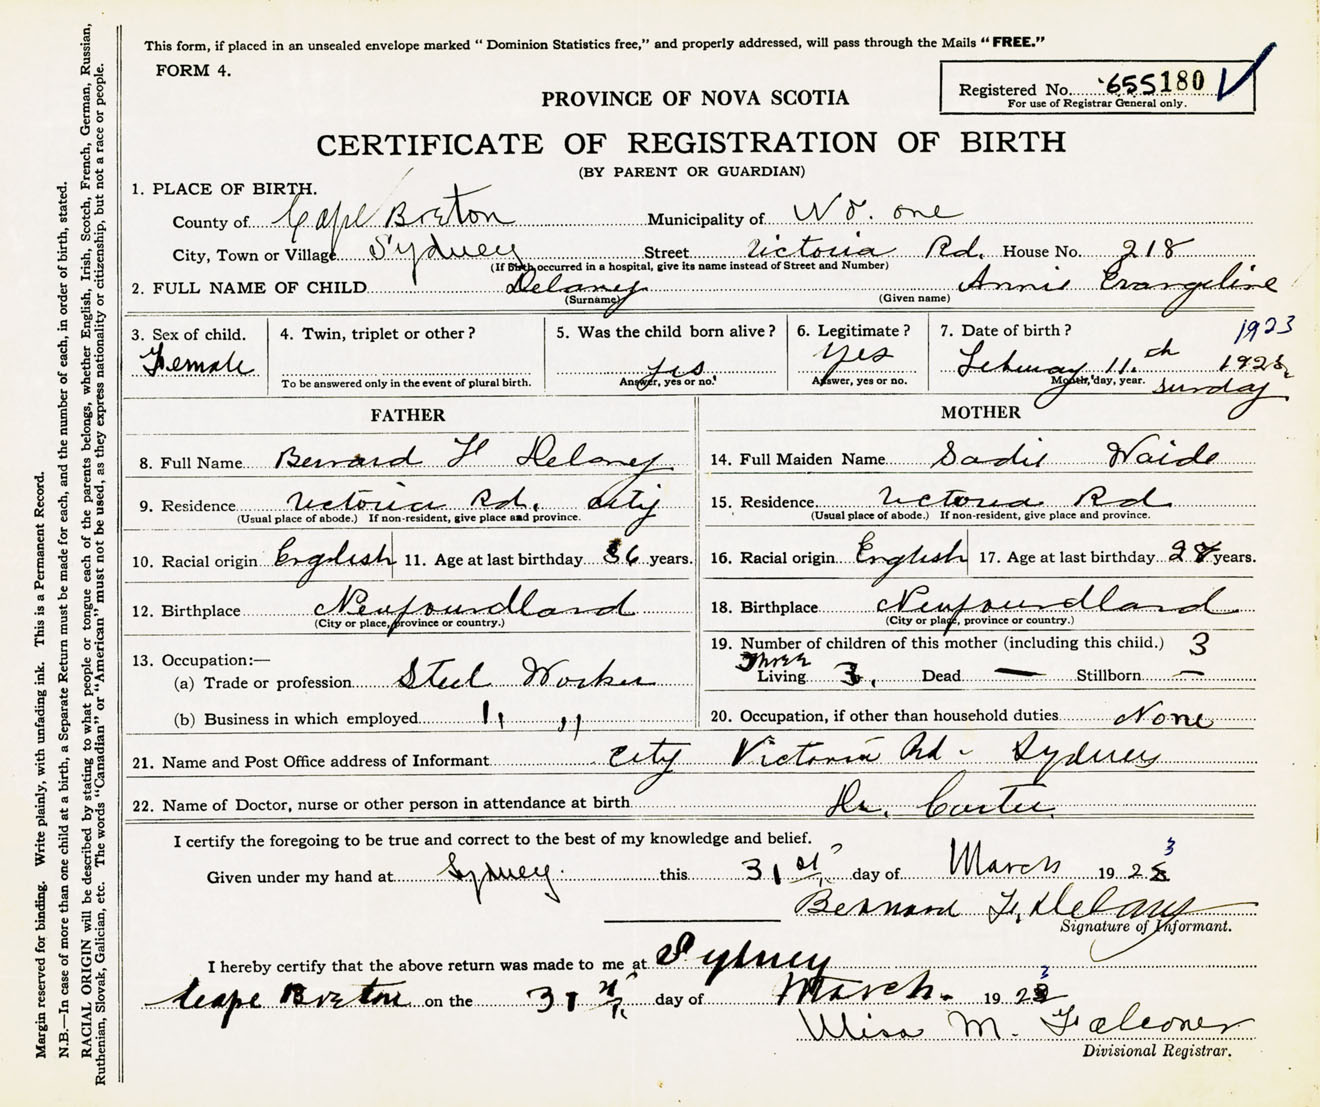 This form, if placed in an unsealed envelope marked " Dominion Statistics free," and properly addressed, will pass through the Mails "FREE."
FORM 4.
Registered No. 655180
For use of Registrar General only.
PROVINCE OF NOVA SCOTIA
CERTIFICATE OF REGISTRATION OF BIRTH
(BY PARENT OR GUARDIAN)
1. PLACE OF BIRTH.
County of Cape Breton Municipality of No. one
City, Town or Village Sydney Street Victoria Rd. House No. 218
(If Birth occurred in a hospital, give its name instead of Street and Number)
2. FULL NAME OF CHILD Delaney Annie Evangeline
(Surname) (Given name)
3. Sex of child. 4. Twin, triplet or other? 5. Was the child born alive? 6. Legitimate? 7. Date of birth? 1923
Female Yes Yes Febuary 11.th
To be answered only in the event of plural birth. Answer, yes or no. Answer, yes or no. Month, day, year. Sunday
FATHER MOTHER
8. Full Name Bernard F Delaney 14. Full Maiden Name Sadie Waide
9. Residence Victoria Rd. City 15. Residence Victoria Rd
(Usual place of abode.) If non-resident, give place and province. (Usual place of abode.) If non-resident, give place and province.
10. Racial origin English 11. Age at last birthday 36 years. 16. Racial origin English 17. Age at last birthday years.
12. Birthplace Newfoundland 18. Birthplace Newfoundland
(City or place, province or country.) (City or place, province or country.)
13. Occupation:—
(a) Trade or profession Steel Worker
(b) Business in which employed " "
19. Number of children of this mother (including this child.) 3
Three
Living 3. Dead — Stillborn —
20. Occupation, if other than household duties None
21. Name and Post Office address of Informant City Victoria Rd - Sydney
22. Name of Doctor, nurse or other person in attendance at birth Dr.
I certify the foregoing to be true and correct to the best of my knowledge and belief.
Given under my hand at Sydney. this 31st day of March 1923
Bernard F. Delaney
Signature of Informant.
I hereby certify that the above return was made to me at Sydney
Cape Breton on the 31st day of March. 1923
Miss M. Falconer
Divisional Registrar.
Margin reserved for binding. Write plainly, with unfading ink. This is a Permanent Record.
N.B.—In case of more than one child at a birth, a Separate Return must be made for each, and the number of each, in order of birth, stated.
RACIAL ORIGIN will be described by stating to what people or tongue each of the parents belongs, whether English, Irish, Scotch, French, German, Russian,
Ruthenian, Slovak, Galician, etc. The words "Canadian" or "American" must not be used, as they express nationality or citizenship, but not a race or people.